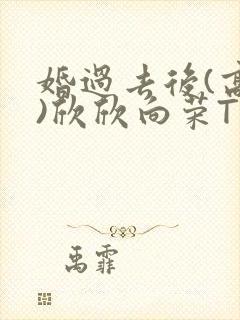 婚過去後(高
)欣欣向荣T
禹霏